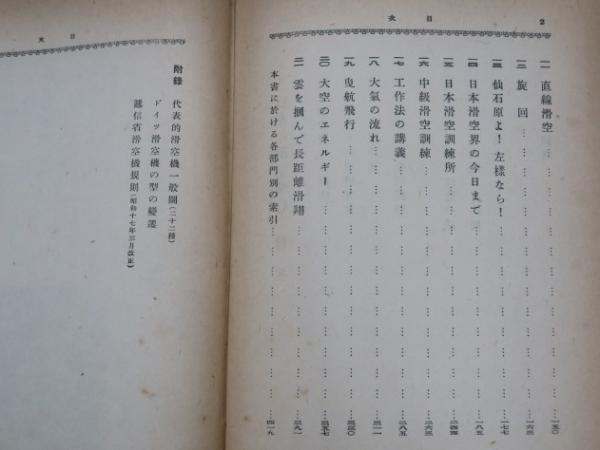 目次 2
一一 直線滑空………一五〇
一二 旋回………一六三
一三 仙石原よ!左樣なら!………一七七
一四 日本滑空界の今日まで………一八五
一五 日本滑空訓練所
一六 中級滑空訓練………二六三
一七 工作法の講義………二八五
一八 大氣の流れ………三一一
一九 曳航飛行………三三〇
二〇 大空のエネルギー………三五七
二一 雲を摑んで長距離滑翔………三九一
本書に於ける各部門別の索引………四一九
目次
附錄 代表的滑空機一般圖(二十二種)
ドイツ滑空機の型の變遷
遞信省滑空機規則(昭和十七年三月改正)